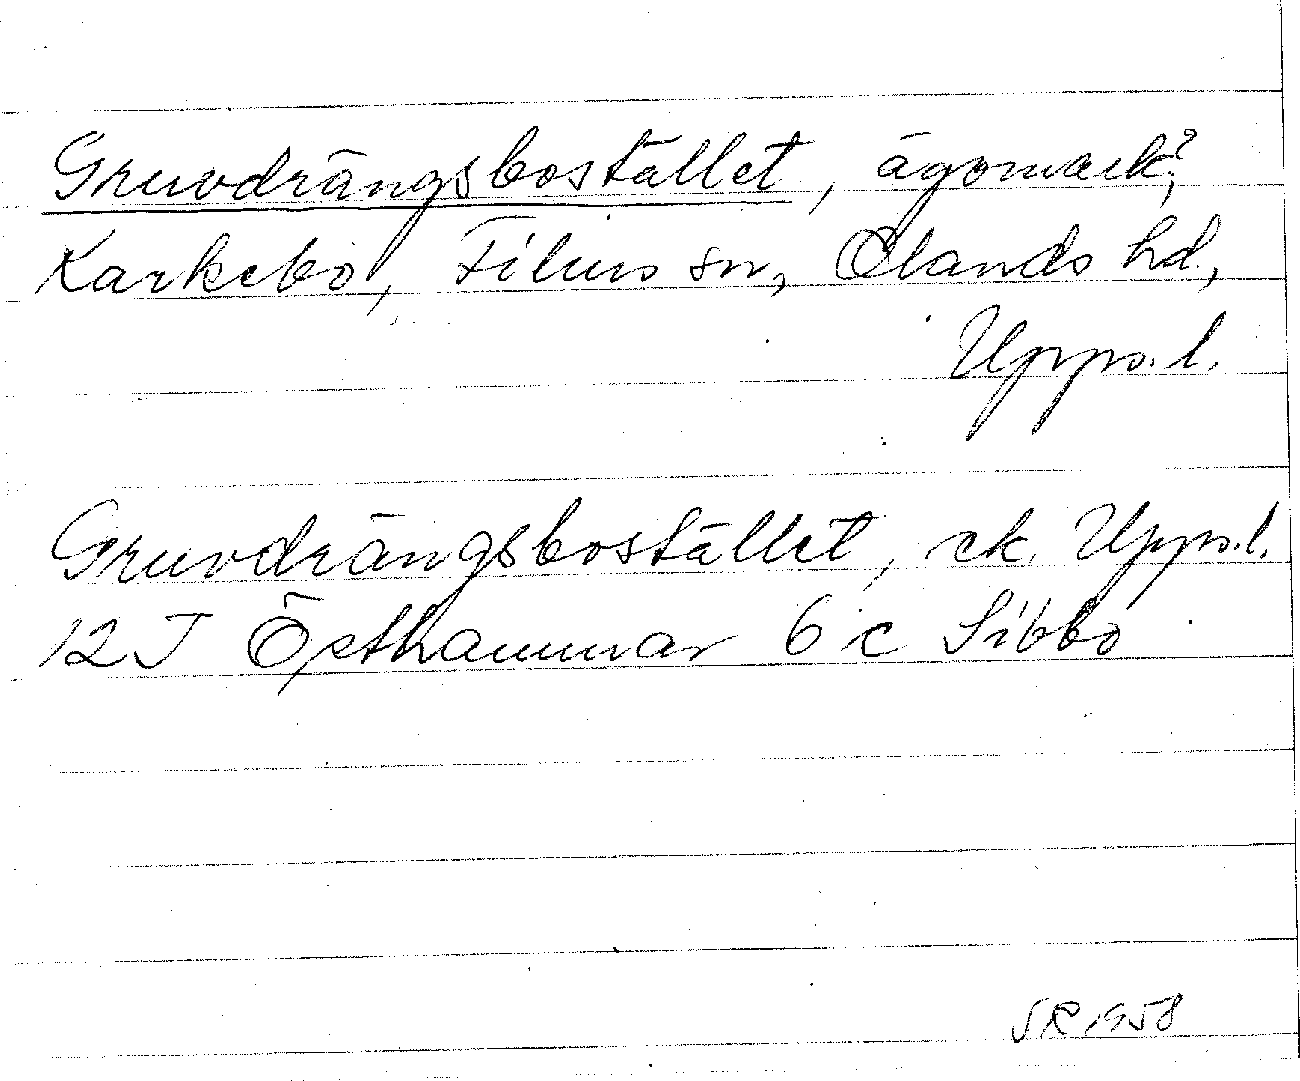 Gruvdrängsbostället, ägomark?,
Karkebo, Films sn, Olands hd,
Upps.l.
Gruvdrängsbostället, ek. Upps.l.
12J Östhammar 6 c Sibbo
SR 1958